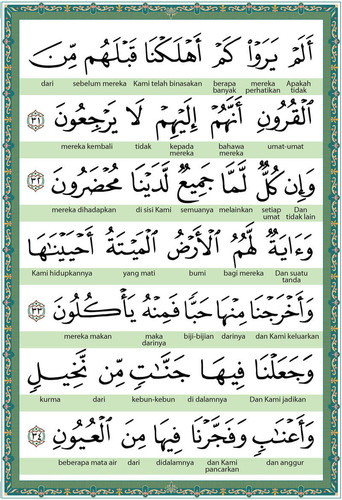 أَلَمْ يَرَوْا۟ كَمْ أَهْلَكْنَا قَبْلَهُم مِّنَ
dari sebelum mereka Kami telah binasakan berapa banyak mereka perhatikan Apakah tidak
ٱلْقُرُونِ أَنَّهُمْ إِلَيْهِمْ لَا يَرْجِعُونَ ٣١
mereka kembali tidak kepada mereka bahawa mereka umat-umat
وَإِن كُلٌّ لَّمَّا جَمِيعٌ لَّدَيْنَا مُحْضَرُونَ ٣٢
mereka dihadapkan di sisi Kami semuanya melainkan setiap umat Dan tidak lain
وَءَايَةٌ لَّهُمُ ٱلْأَرْضُ ٱلْمَيْتَةُ أَحْيَيْنَٰهَا
Kami hidupkannya yang mati bumi bagi mereka Dan suatu tanda
وَأَخْرَجْنَا مِنْهَا حَبًّا فَمِنْهُ يَأْكُلُونَ ٣٣
mereka makan maka darinya biji-bijian darinya dan Kami keluarkan
وَجَعَلْنَا فِيهَا جَنَّٰتٍ مِّن نَّخِيلٍ
kurma dari kebun-kebun di dalamnya Dan Kami jadikan
وَأَعْنَٰبٍ وَفَجَّرْنَا فِيهَا مِنَ ٱلْعُيُونِ ٣٤
beberapa mata air dari didalamnya dan Kami pancarkan dan anggur